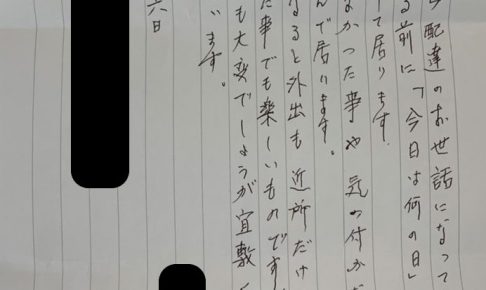 配達のお世話になって
る前に「今日は何の日」
て居ります
なかった事や気の付かな
んで居ります。
なると外出も近所だけ
た事でも楽しいものです
も大変でしょうが宜敷
います。
六日